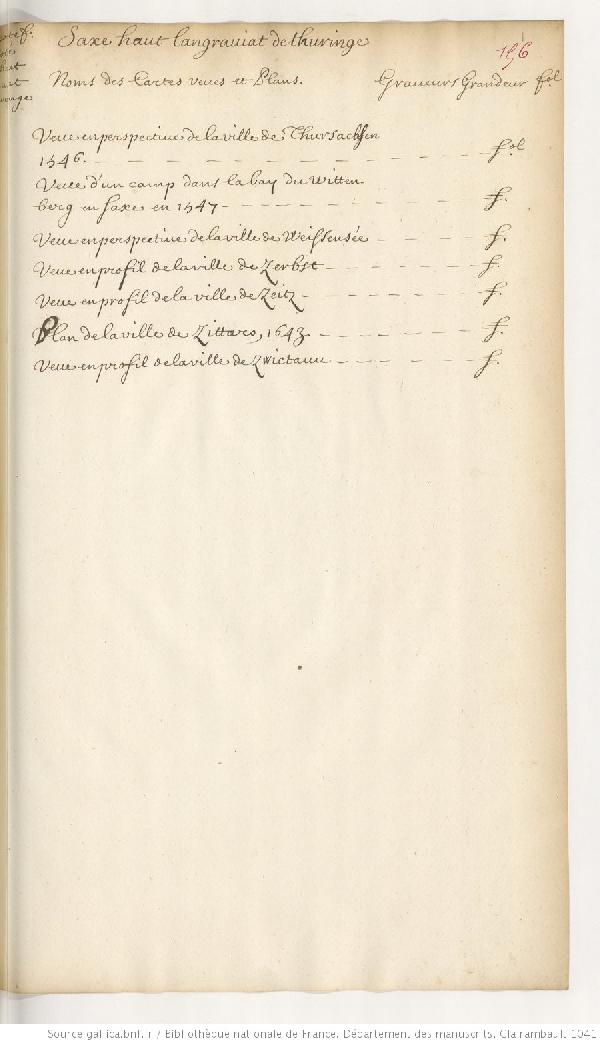 Saxe haut langraviat de thuringe
156
Noms des Cartes veues et Plans. Graveurs Grandeur fol
Veue en perspective de la ville de Thursachsen
1546. fol
Veue d'un camp dans la bay du Witten
berg en Saxe en 1547 - f.
Veue en perspective de la ville de Weissensée f.
Veue en profil de la ville de Zerbst f.
Veue en profil de la ville de Zeitz f.
Plan de la ville de Zittaro, 1643 f.
Veue en profil de la ville de Zwictauu f.
Source gallica.bnf.fr / Bibliothèque nationale de France. Département des manuscrits. Clairambault 1041